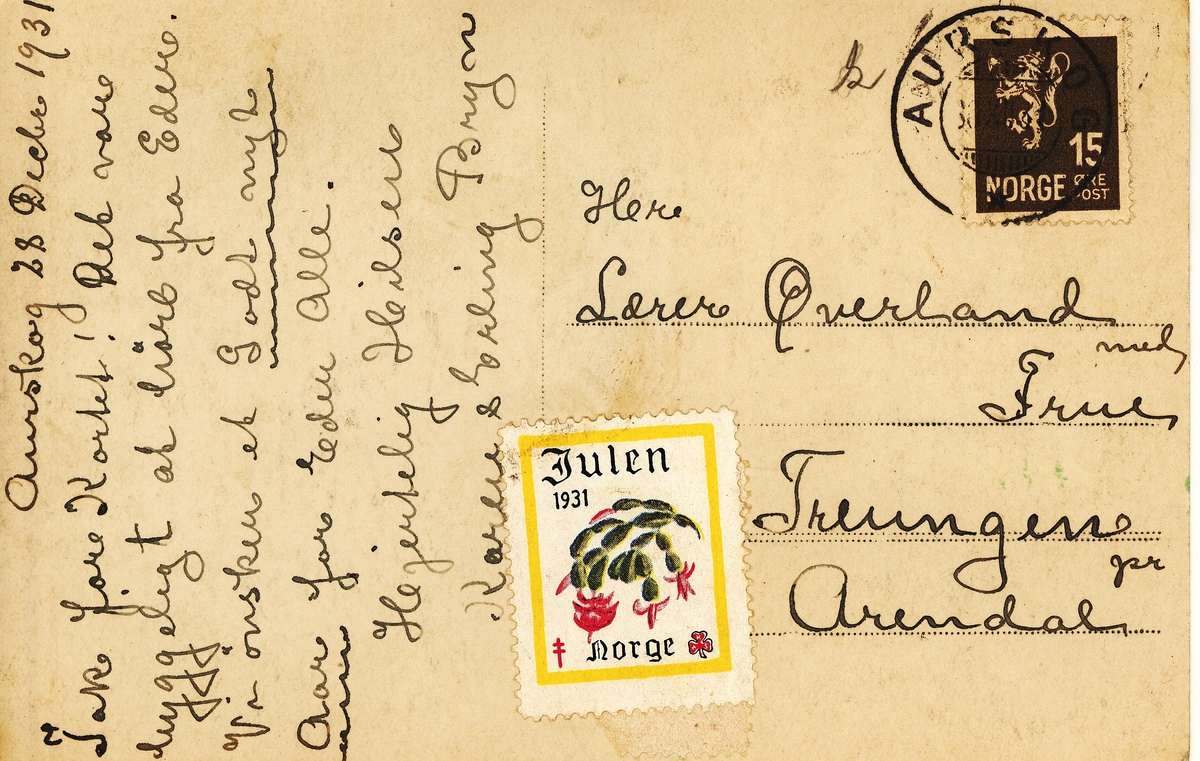 Aurskog 28 Decbr 1931
Tak före Kortet! Det vare
hyggeligt at hört fra Edere.
Vi önsker et Godt nyt
Aar for Eder alle.
Hejertelig Heilsen
Karen & Erling Bryn
AURSKOG
15
NORGE ØRE
POST
Herr
Lærer Øverland
med
Frue
Treungen
pr
Arendal
Julen
1931
Norge